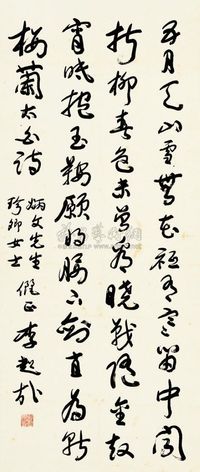 五月天山雪無花祗有寒笛中聞
折柳春色未曾看曉戰隨金鼓
宵眠抱玉鞍願將腰下劍直為斬
樓蘭太白詩
炳文先生
珍卿女士
儷正 李超哉